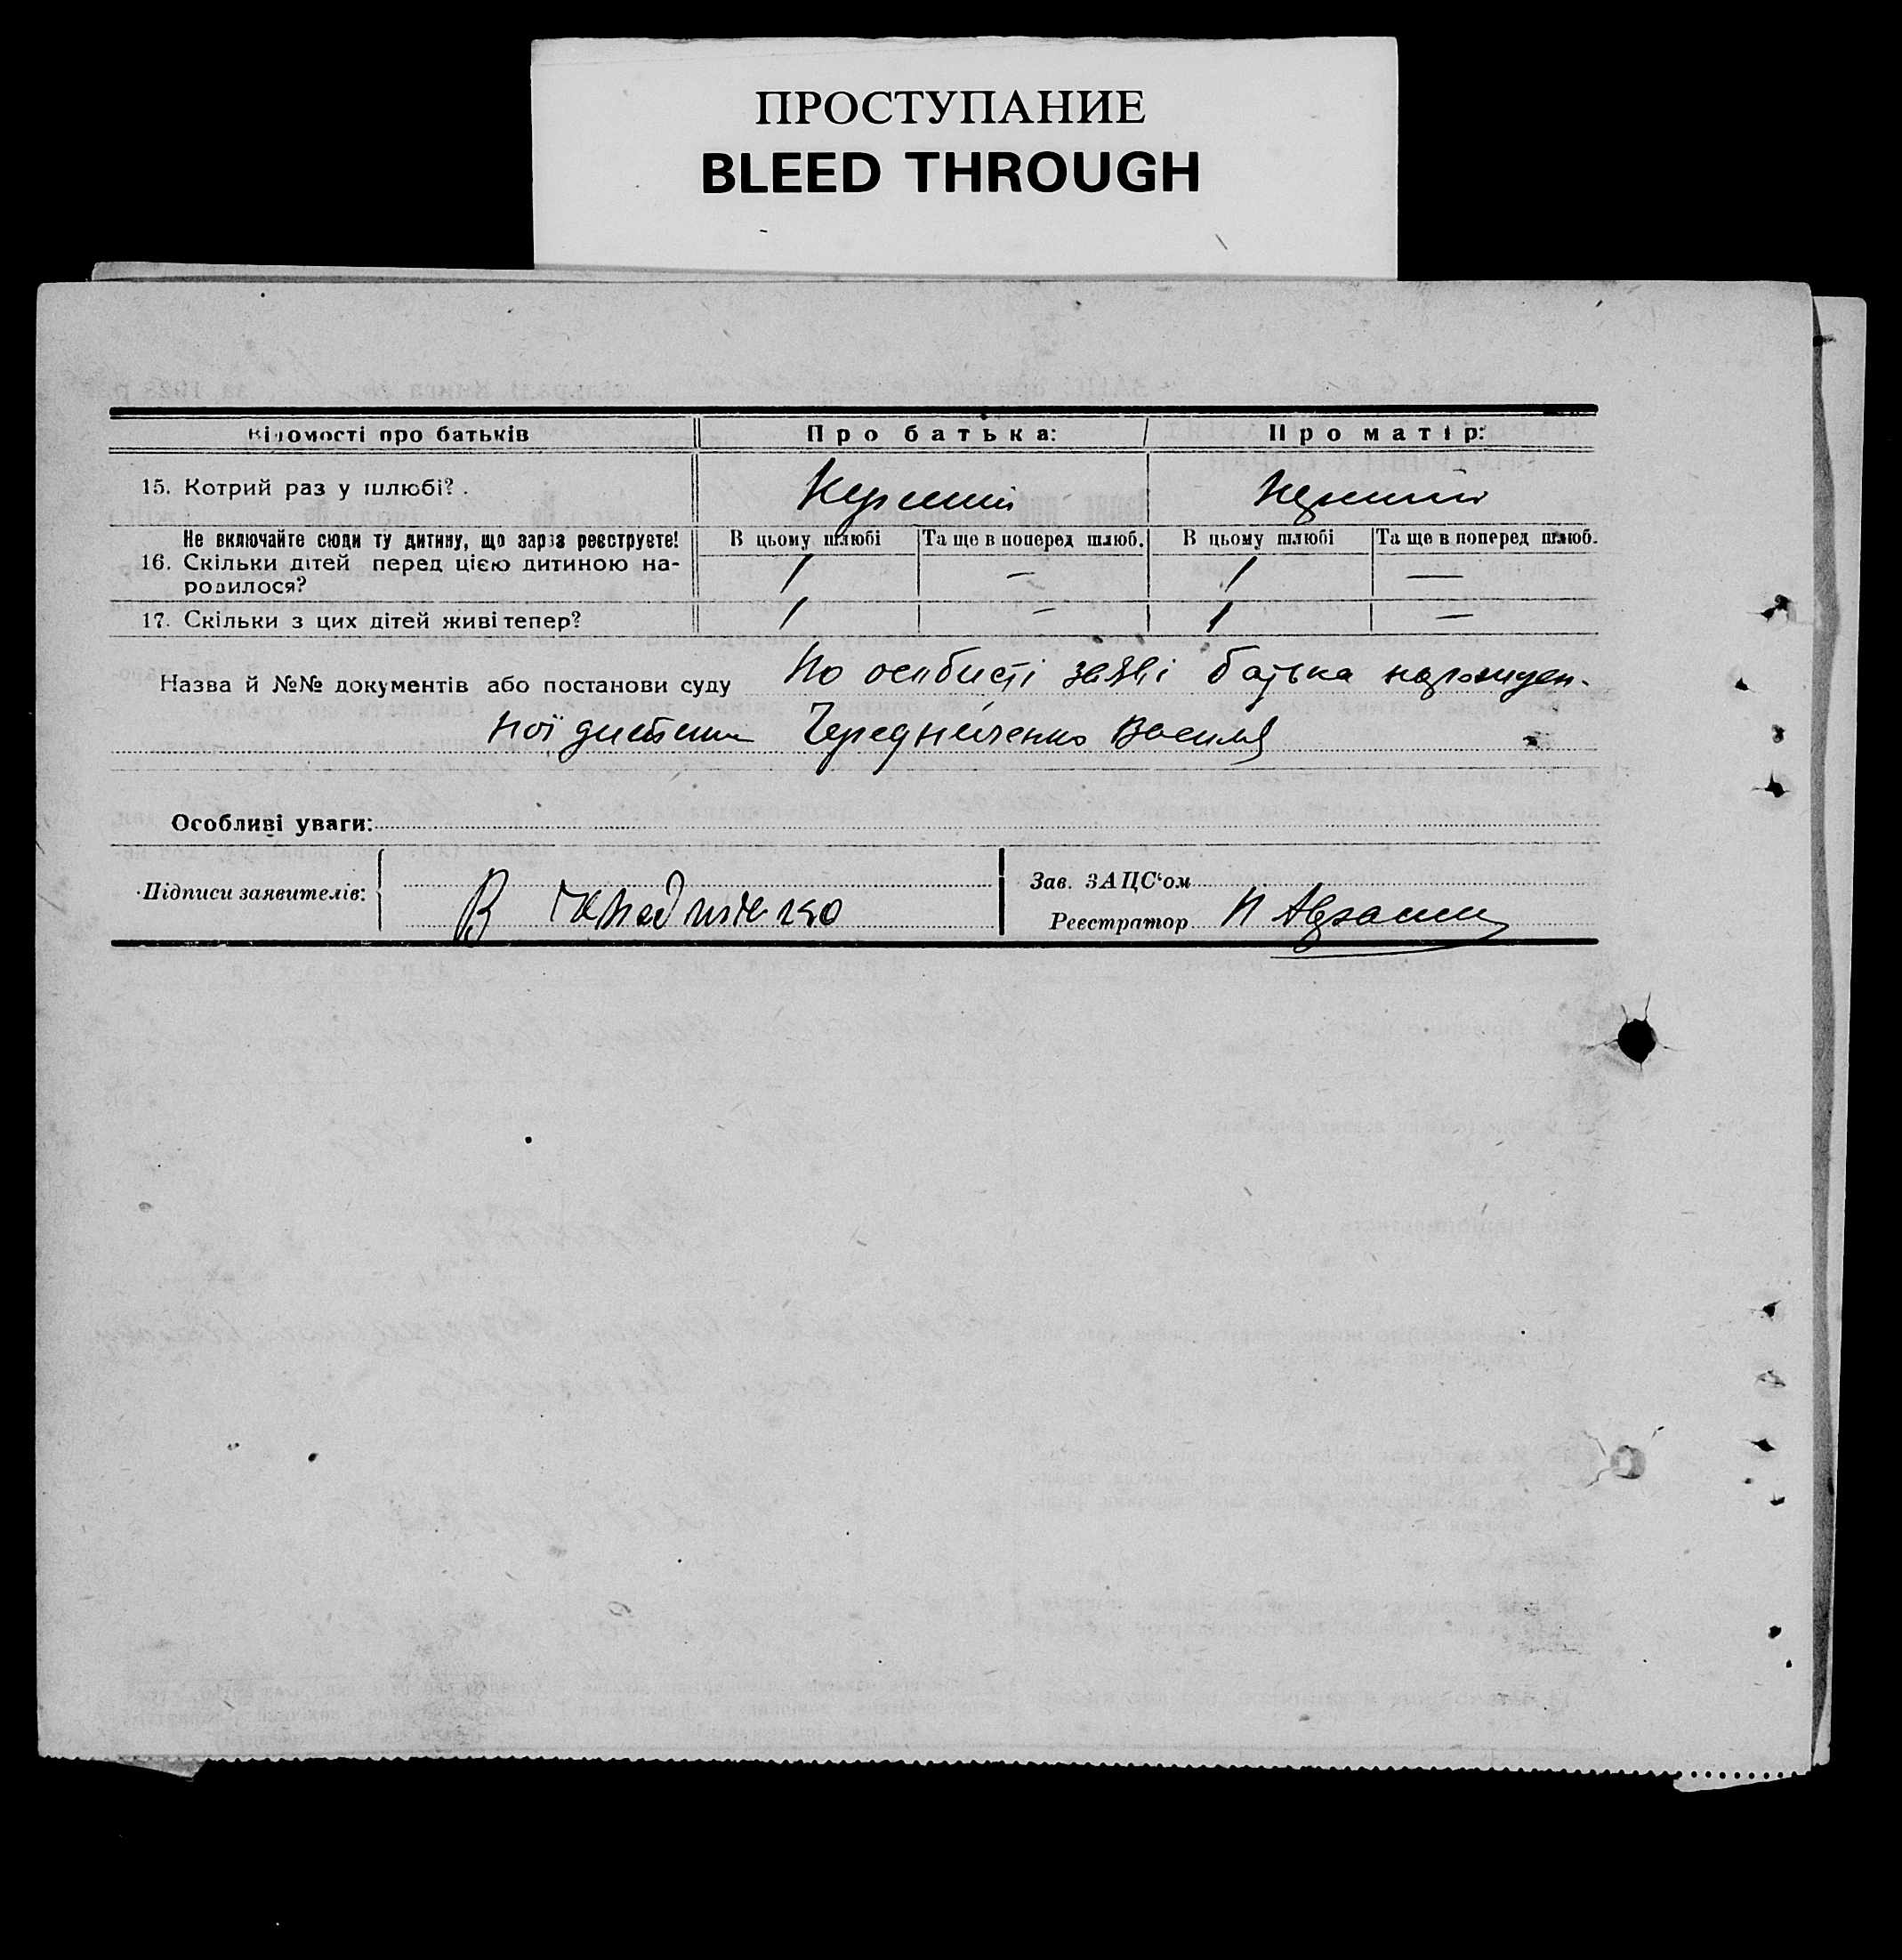 ПРОСТУПАНИЕ
BLEED THROUGH
Відомості про батьків Про батька: Про матір:
15. Котрий раз у шлюбі? Перший Перший
Не включайте сюди ту дитину, що зараз реєструєте! В цьому шлюбі Та ще в поперед шлюб. В цьому шлюбі Та ще в поперед шлюб.
16. Скільки дітей перед цією дитиною на-
родилося? 1 — 1 —
17. Скільки з цих дітей живі тепер? 1 — 1 —
Назва й №№ документів або постанови суду По особисті заяві батька нарожден-
ної дитини Чередниченко Василя
Особливі уваги:
Підписи заявителів: В Зав. ЗАЦС'ом
Реєстратор